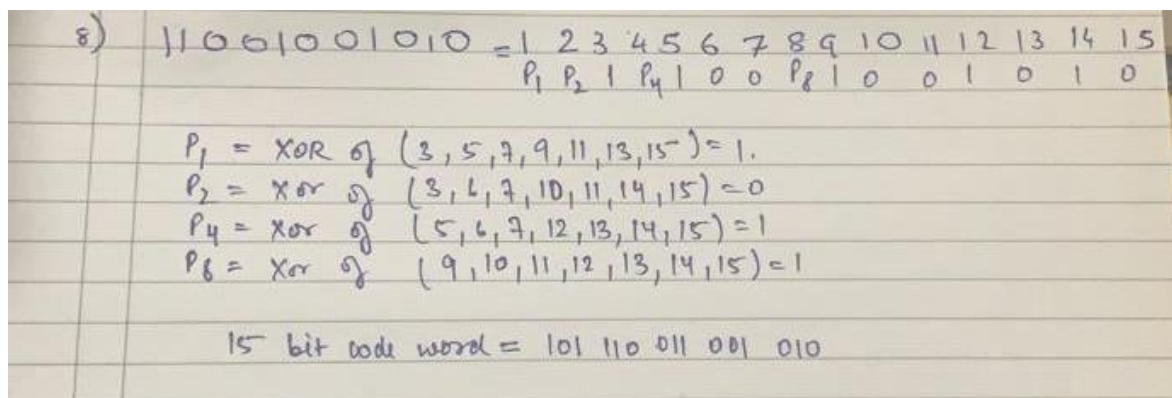 8) 11001001010 = 1 2 3 4 5 6 7 8 9 10 11 12 13 14 15
P1 P2 1 P4 1 0 0 P8 1 0 0 1 0 1 0
P1 = XOR of (3,5,7,9,11,13,15) = 1.
P2 = Xor of (3,6,7,10,11,14,15) = 0
P4 = Xor of (5,6,7,12,13,14,15) = 1
P8 = Xor of (9,10,11,12,13,14,15) = 1
15 bit code word = 101 110 011 001 010